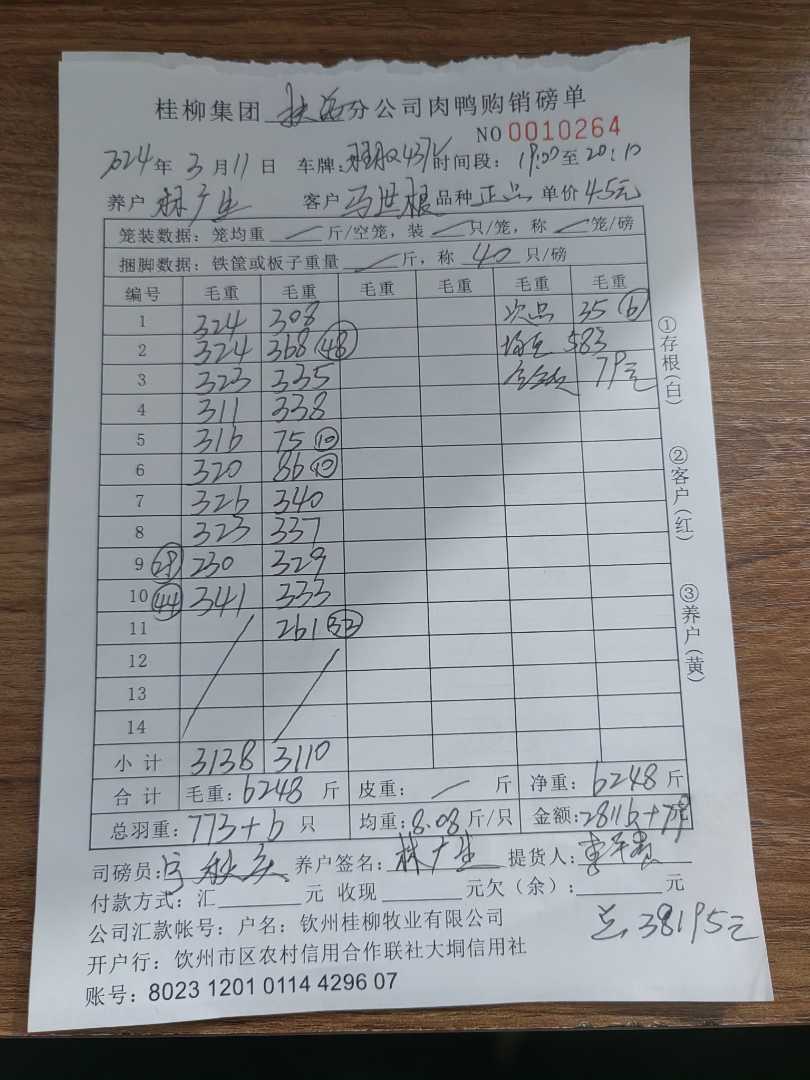 桂柳集团 分公司肉鸭购销磅单
NO 0010264
2024 年 3 月 11 日 车牌: 时间段: 19:00 至 20:10
养户 林广生 客户 马世根 品种 正品 单价 4.5元
笼装数据: 笼均重 / 斤/空笼, 装 / 只/笼, 称 / 笼/磅
捆脚数据: 铁筐或板子重量 / 斤, 称 40 只/磅
编号 毛重 毛重 毛重 毛重 毛重 毛重
1 324 308 次品 35 (6)
2 324 368 (48) 583
3 323 335 79元
4 311 338
5 316 75 (10)
6 320 86 (10)
7 326 340
8 323 337
9 230 329
10 (44) 341 333
11 261 (32)
12
13
14
小计 3138 3110
合计 毛重: 6248 斤 皮重: / 斤 净重: 6248 斤
总羽重: 773+6 只 均重: 8.08 斤/只 金额: 28116+79
司磅员: 养户签名: 林广生 提货人:
付款方式: 汇 元 收现 元欠(余): 元
公司汇款帐号: 户名: 钦州桂柳牧业有限公司
总 38195元
开户行: 钦州市区农村信用合作联社大垌信用社
账号: 8023 1201 0114 4296 07
①存根(白)
②客户(红)
③养户(黄)